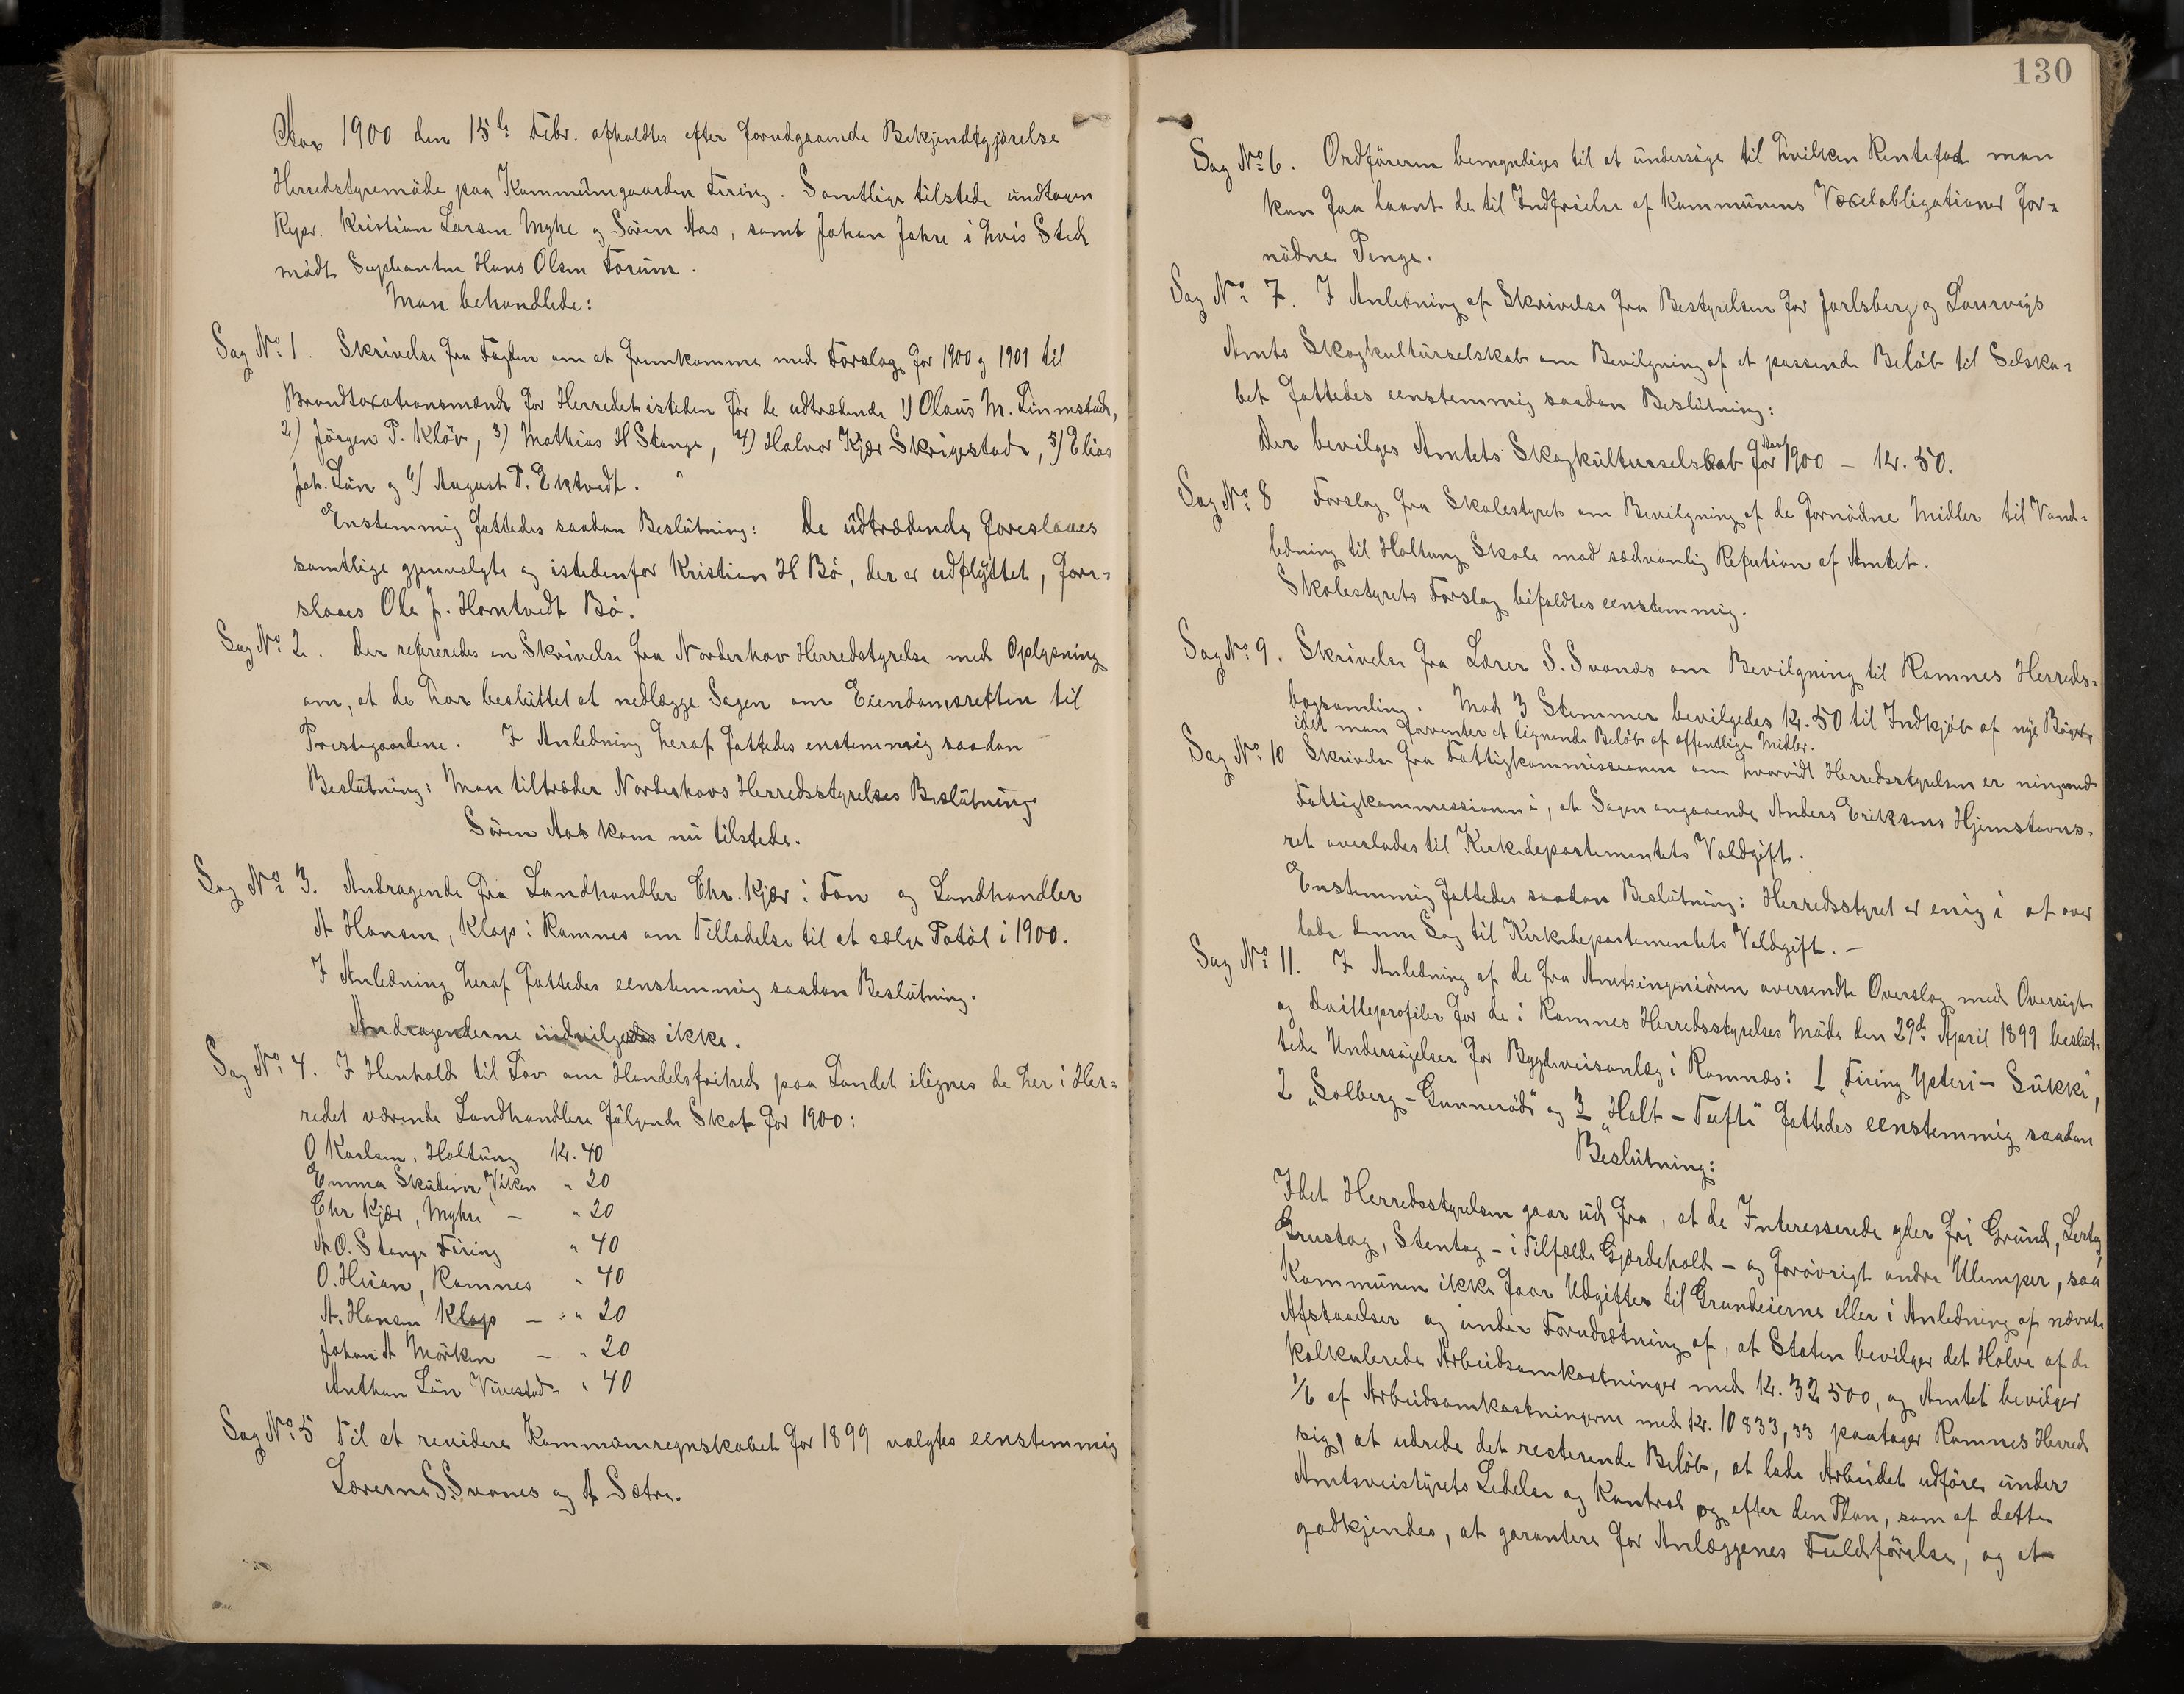 Aar 1900 den 15de Febr. afholdtes efter forudgaaende Bekjendtgjørelse
Herredstyremöde paa Kommunegaarden Firing. Samtlige tilstede undtagen
Repr. Kristian Larsen Myhre og Sören Aas, samt Johan Jahre i hvis Sted
mödte Suppleanten Hans Olsen Forum.
Man behandlede:
Sag No 1. Skrivelse fra Fogden om at fremkomme med Forslag for 1900 og 1901 til
Brandtaxationsmænd for Herredet isteden for de udtrædende 1) Olaus M. Linnestad,
2) Jörgen P. Klöv, 3) Mathias H Stange, 4) Halvor Kjær Skrigestad, 5) Elias
Joh. Lün og 6) August P. Ektvedt.
Enstemmig fattedes saadan Beslutning: De udtrædende foreslaaes
samtlige gjenvalgte og istedenfor Kristian H Bö, der er udflyttet, fore-
slaaes Ole J. Horntvedt Bö.
Sag No 2. Der refereredes en Skrivelse fra Norderhov Herredstyrelse med Oplysning
om, at de har besluttet at nedlægge Sagen om Eiendomsretten til
Prestegaardene. I Anledning heraf fattedes enstemmig saadan
Beslutning: Man tiltræder Norderhovs Herredsstyrelses Beslutning
Sören Aas kom nu tilstede.
Sag No 3. Andragende fra Landhandler Chr. Kjær i Fon og Landhandler
A Hansen, Klop i Ramnes om Tilladelse til at sælge Patöl i 1900.
I Anledning heraf fattedes eenstemmig saadan Beslutning.
Andragenderne indvilgedes ikke.
Sag No 4. I Henhold til Lov om Handelsfrihed paa Landet ilignes de her i Her-
redet værende Landhandlere fölgende Skat for 1900:
O Karlsen, Holtung Kr. 40
Emma Skudem, Viken " 20
Chr Kjær, Myhre — " 20
A. O. Stange Firing " 40
O. Hvian, Ramnes " 40
A. Hansen Klop — " 20
Johan A Mörken — " 20
Anthon Lün Vivestad " 40
Sag No 5 Til at revidere Kommuneregnskabet for 1899 valgtes eenstemmig
Lærerne S. Svanes og A Sætre.
130
Sag No 6. Ordföreren bemyndiges til at undersöge til hvilken Rentefod man
kan faa laant de til Indfrielse af Kommunens Vexelobligationer for-
nödne Penge.
Sag No 7. I Anledning af Skrivelse fra Bestyrelsen for Jarlsberg og Laurvigs
Amts Skogkulturselskab om Bevilgning af et passende Belöb til Selska-
bet fattedes eenstemmig saadan Beslutning:
Der bevilges Amtets Skogkulturselskab for 1900 — Kr. 50.
Sag No 8 Forslag fra Skolestyret om Bevilgning af de fornödne Midler til Vand-
ledning til Holtung Skole mod sædvanlig Refution af Amtet.
Skolestyrets Forslag bifaldtes eenstemmig.
Sag No 9. Skrivelse fra Lærer S. Svanæs om Bevilgning til Ramnes Herreds-
bogsamling. Mod 3 Stemmer bevilgedes Kr. 50 til Indkjöb af nye Böger,
idet man forventer et lignende Belöb af offentlige Midler.
Sag No 10 Skrivelse fra Fattigkommissionen om hvorvidt Herredsstyrelsen er enig med
Fattigkommissionen i, at Sagen angaaende Anders Eriksens Hjemstavns-
ret overlades til Kirkedepartementets Voldgift.
Enstemmig fattedes saadan Beslutning: Herredsstyret er enig i at over
lade denne Sag til Kirkedepartementets Voldgift. —
Sag No 11. I Anledning af de fra Amtsingeniören oversendte Overslag med Oversigt
og Detailleprofiler for de i Ramnes Herredsstyrelses Möde den 29de April 1899 beslut-
tede Undersögelser for Bygdeveisanlæg i Ramnæs: 1 "Firing Ysteri — Sukke",
2 "Solberg — Gunneröd" og 3 "Holt — Tufte" fattedes eenstemmig saadan
Beslutning:
Idet Herredsstyrelsen gaar ud fra, at de Interesserede yder fri Grund, Lertag
Grustag, Stentag — i Tilfælde Gjærdehold — og forövrigt andre Ulemper, saa
Kommunen ikke faar Udgifter til Grundeierne eller i Anledning af nævnte
Afstaaelser og under Forudsætning af, at Staten bevilger det Halve af de
kalkulerede Arbeidsomkostninger med Kr. 32 500, og Amtet bevilger
1/6 af Arbeidsomkostningerne med Kr. 10 833,33 paatager Ramnes Herred
sig, at udrede det resterende Belöb, at lade Arbeidet udföres under
Amtsveistyrets Ledelse og Kontrol og efter den Plan, som af dette
godkjendes, at garantere for Anlæggenes Fuldförelse, og at